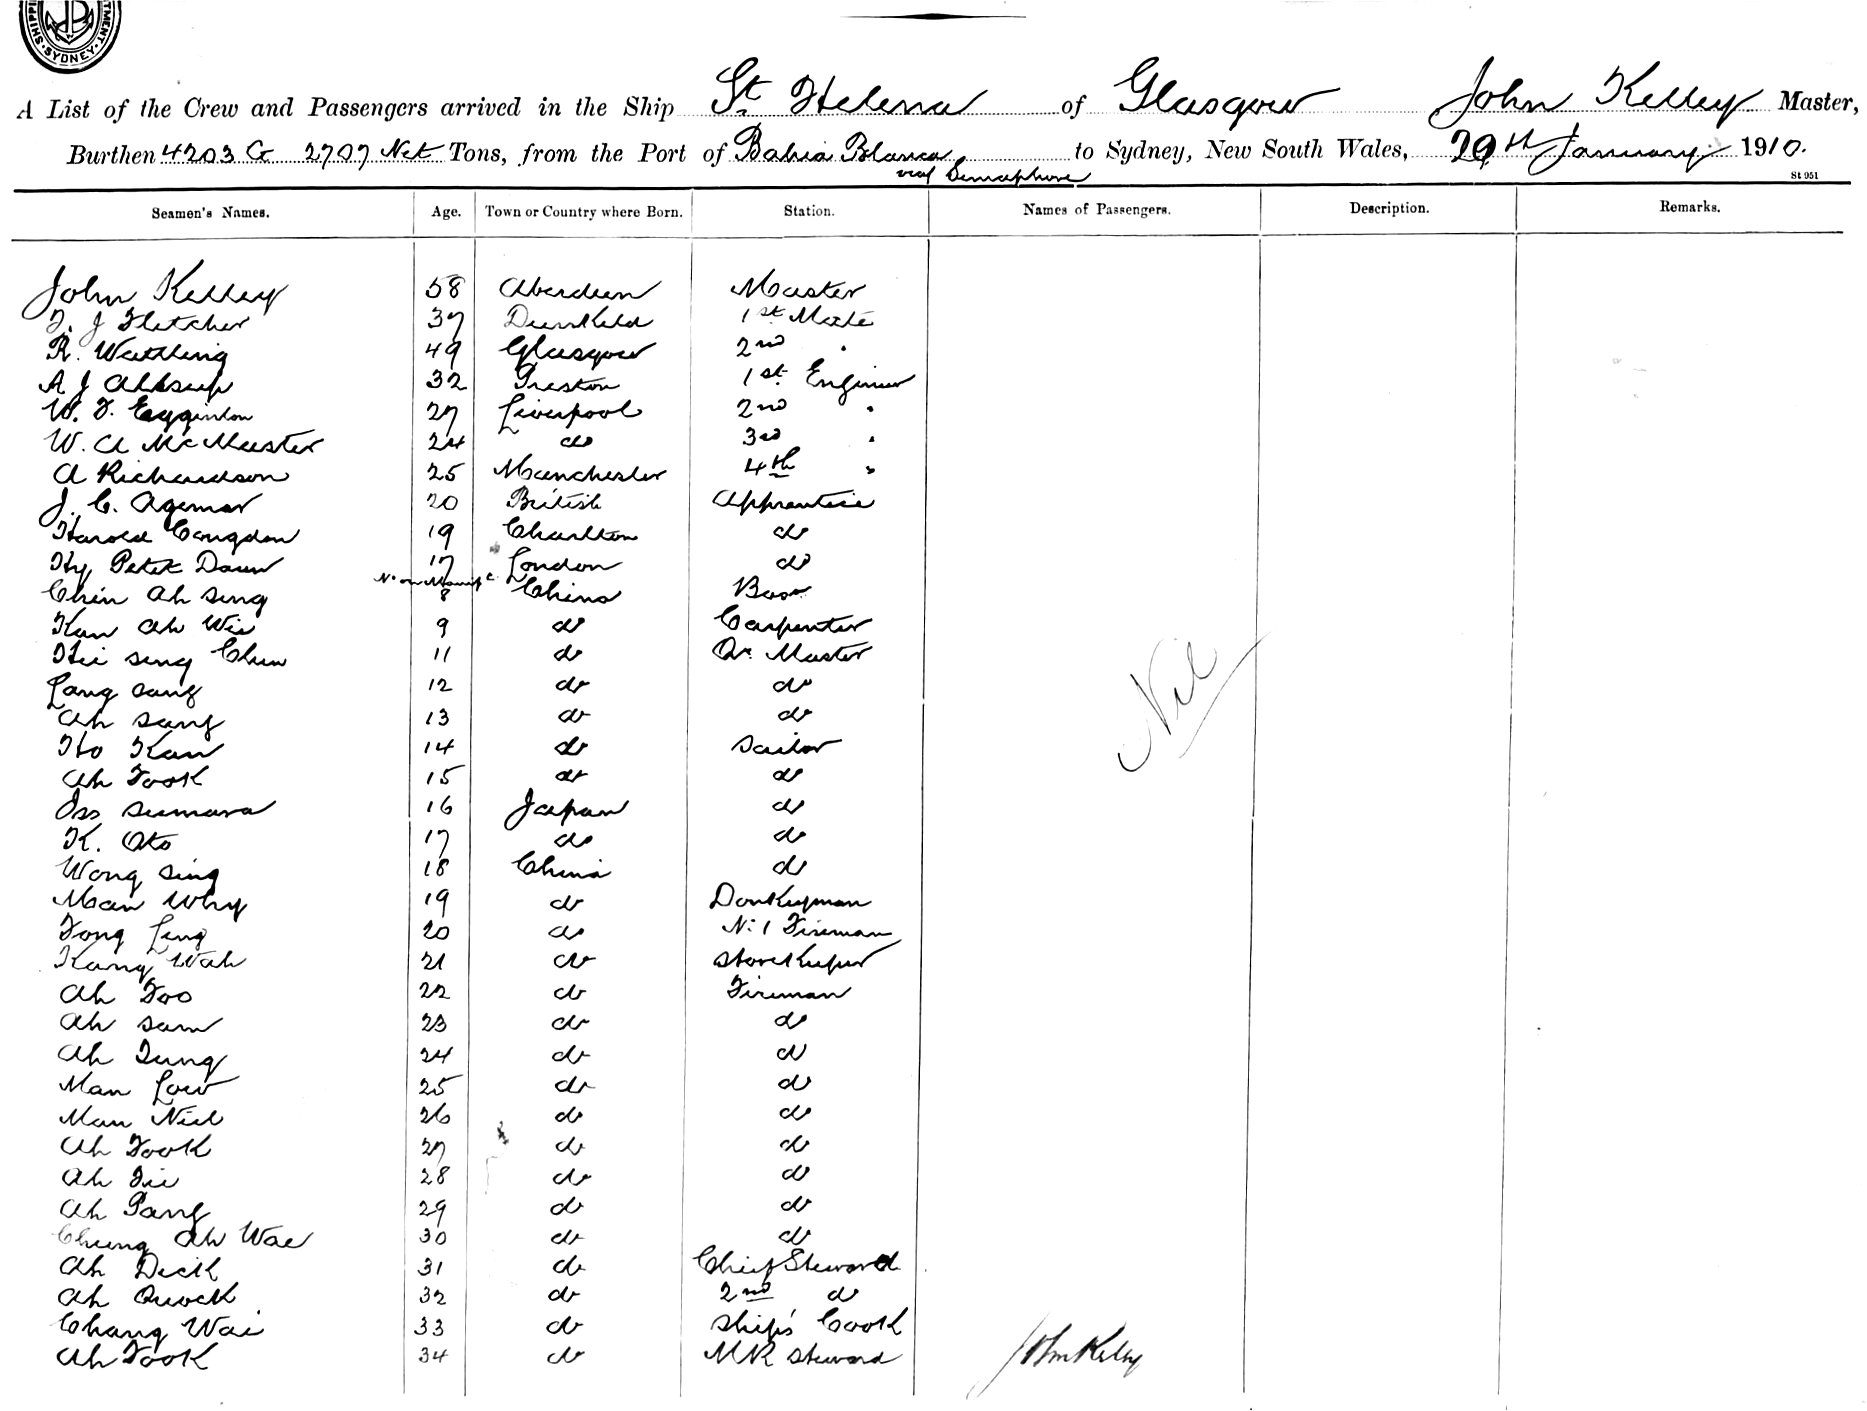 SHIPPING DEPARTMENT SYDNEY
A List of the Crew and Passengers arrived in the Ship St. Helena of Glasgow John Kelley Master,
Burthen 4203 G 2707 Net Tons, from the Port of Bahia Blanca to Sydney, New South Wales, 29th January 1910.
via Semaphore
St 951
Seamen's Names. Age. Town or Country where Born. Station. Names of Passengers. Description. Remarks.
John Kelley 58 Aberdeen Master
T. J Fletcher 37 Dunkeld 1st Mate
R. Watling 49 Glasgow 2nd "
A J Allsup 32 Preston 1st Engineer
W. F. Egginton 27 Liverpool 2nd "
W. A McMaster 24 do 3rd "
A Richardson 25 Manchester 4th "
J. C. Agemar 20 British Apprentice
Harold Congdon 19 Charlton do
Hy Peter Daun 17 London do
No on Manif
Chin Ah Sing 8 China Bosn
Kan Ah Wie 9 do Carpenter
Hee Sing Chun 11 do Qr. Master
Lang Sang 12 do do
Ah Sang 13 do do
Ho Kan 14 do Sailor
Ah Fook 15 do do
Iss Sumara 16 Japan do
K. Oto 17 do do
Wong Sing 18 China do
Man Why 19 do Donkeyman
Fong Ling 20 do No 1 Fireman
Kang Wah 21 do Storekeeper
Ah Foo 22 do Fireman
Ah Sam 23 do do
Ah Tung 24 do do
Man Low 25 do do
Man Niel 26 do do
Ah Fook 27 do do
Ah Fie 28 do do
Ah Pang 29 do do
Chung Ah Wae 30 do do
Ah Dick 31 do Chief Steward
Ah Quock 32 do 2nd do
Chang Wai 33 do Ship's Cook
Ah Fook 34 do MR Steward
Nil
John Kelley